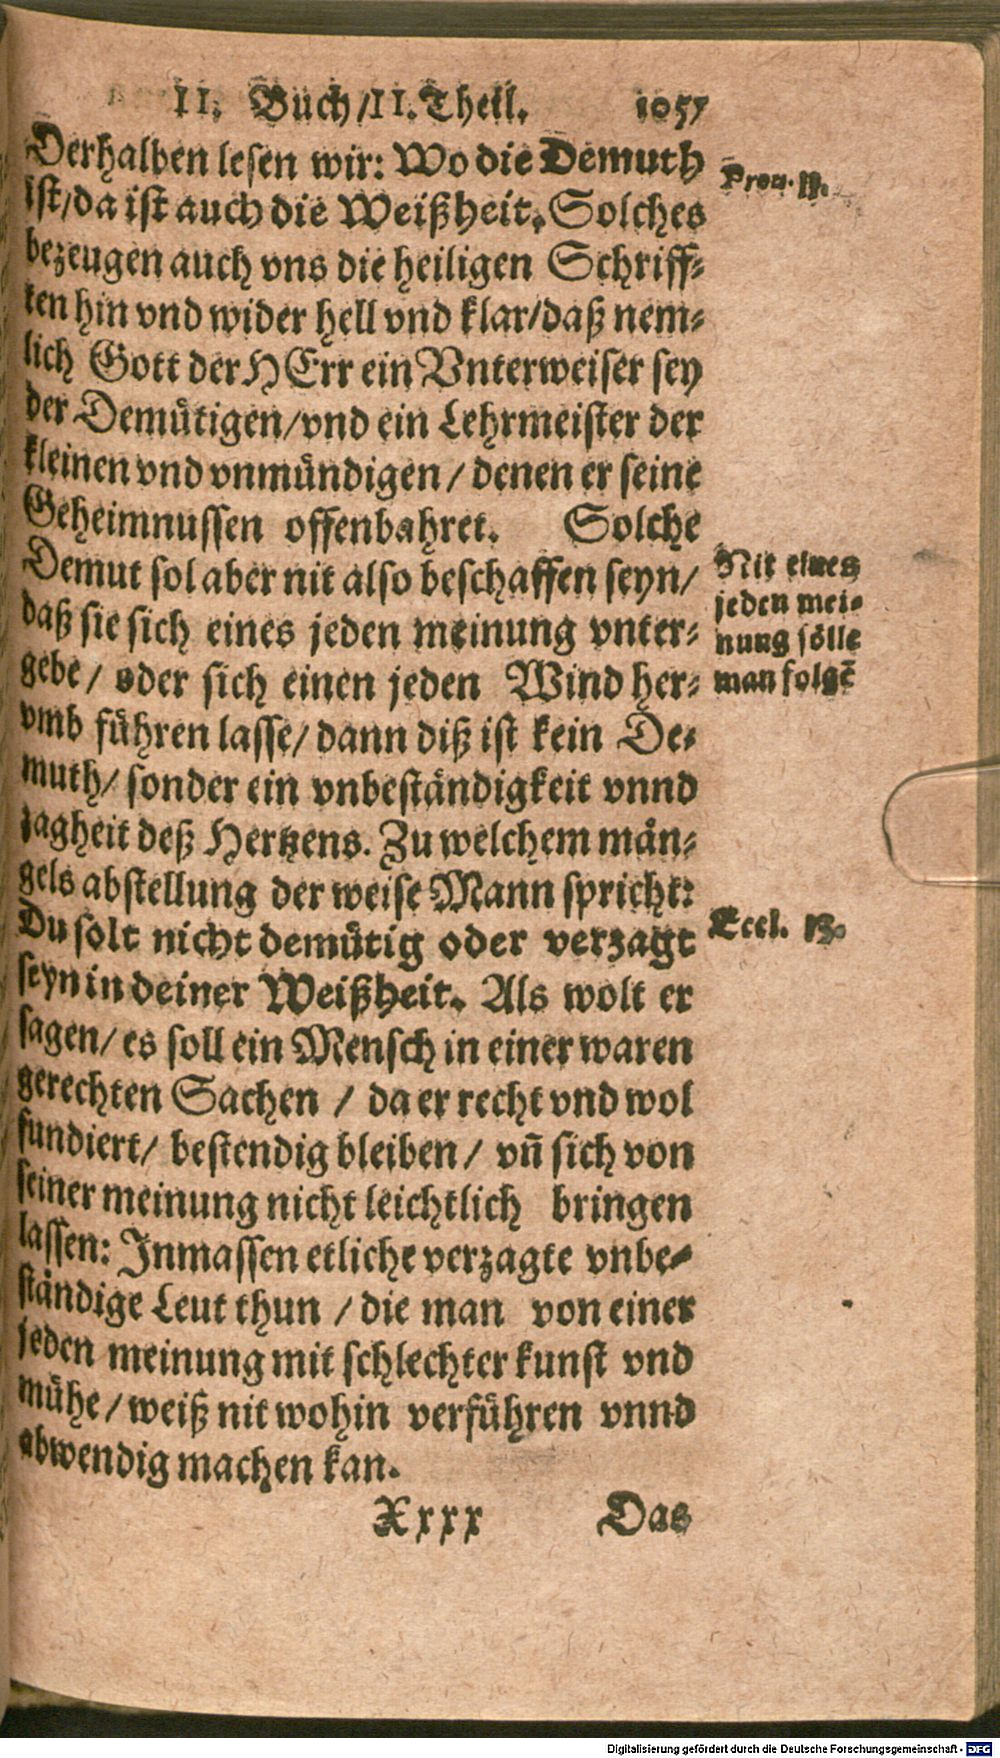 II. Buch/II. Theil. 1057
Derhalben lesen wir: Wo die Demuth
ist/da ist auch die Weißheit. Solches
bezeugen auch vns die heiligen Schriff-
ten hin vnd wider hell vnd klar/daß nem-
lich Gott der HErr ein Vnterweiser sey
der Demütigen/vnd ein Lehrmeister der
kleinen vnd vnmündigen/ denen er seine
Geheimnussen offenbahret. Solche
Demut sol aber nit also beschaffen seyn/
daß sie sich eines jeden meinung vnter-
gebe/ oder sich einen jeden Wind her-
vmb führen lasse/ dann diß ist kein De-
muth/ sonder ein vnbeständigkeit vnnd
zagheit deß Hertzens. Zu welchem män-
gels abstellung der weise Mann spricht:
Du solt nicht demütig oder verzagt
seyn in deiner Weißheit. Als wolt er
sagen/ es soll ein Mensch in einer waren
gerechten Sachen / da er recht vnd wol
fundiert/ bestendig bleiben/ vñ sich von
seiner meinung nicht leichtlich bringen
lassen: Inmassen etliche verzagte vnbe-
ständige Leut thun / die man von einer
jeden meinung mit schlechter kunst vnd
mühe/ weiß nit wohin verführen vnnd
abwendig machen kan.
Xxxx Das
Prou.
Nit eines
jeden mei-
nung sölle
man folgē
Eccl. 13.
Digitalisierung gefördert durch die Deutsche Forschungsgemeinschaft - DFG